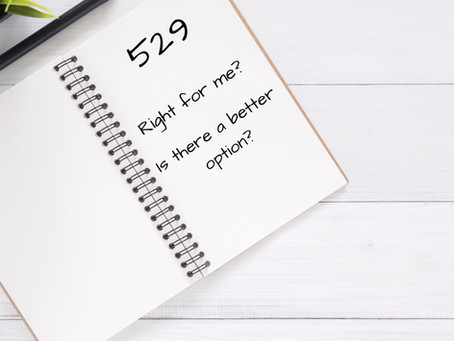 529
Right for me?
Is there a better
option?